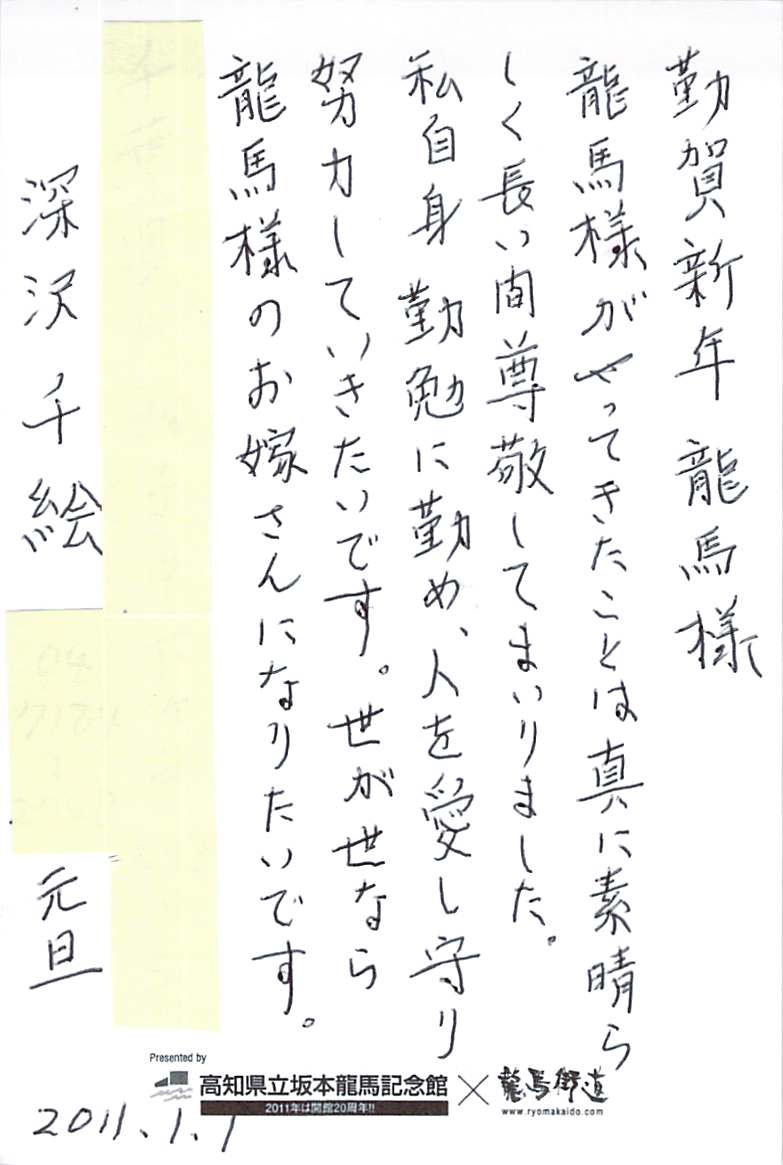 勤賀新年 龍馬様
龍馬様がやってきたことは真に素晴ら
しく長い間尊敬してまいりました。
私自身 勤勉に勤め、人を愛し守り
努力していきたいです。世が世なら
龍馬様のお嫁さんになりたいです。
深沢千絵
元旦
Presented by
高知県立坂本龍馬記念館 × 龍馬街道
2011年は開館20周年!!
www.ryomakaido.com
2011.1.1